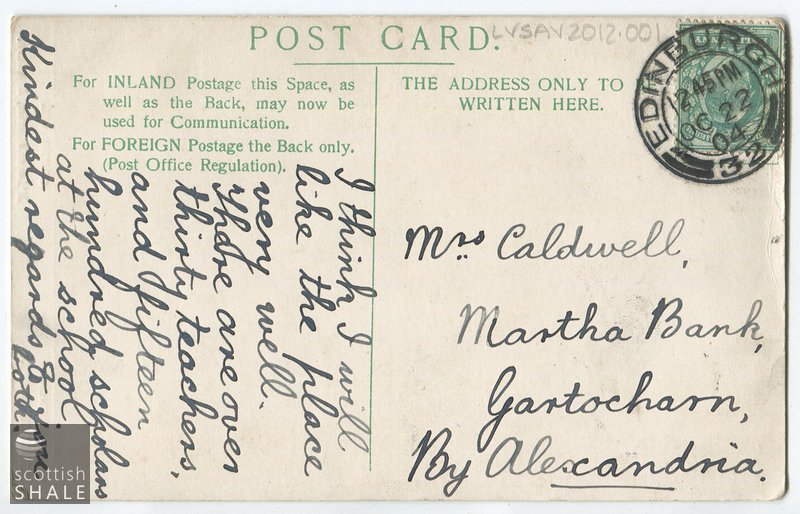 LVSAV2012.001
POST CARD.
For INLAND Postage this Space, as
well as the Back, may now be
used for Communication.
For FOREIGN Postage the Back only.
(Post Office Regulation).
THE ADDRESS ONLY TO
WRITTEN HERE.
EDINBURGH
12.45 PM
22
04
32
I think I will
like the place
very well.
There are over
thirty teachers,
and fifteen
hundred scholars
at the school
Kindest regards to
both.
Mrs Caldwell,
Martha Bank,
Gartocharn,
By Alexandria.
scottish
SHALE